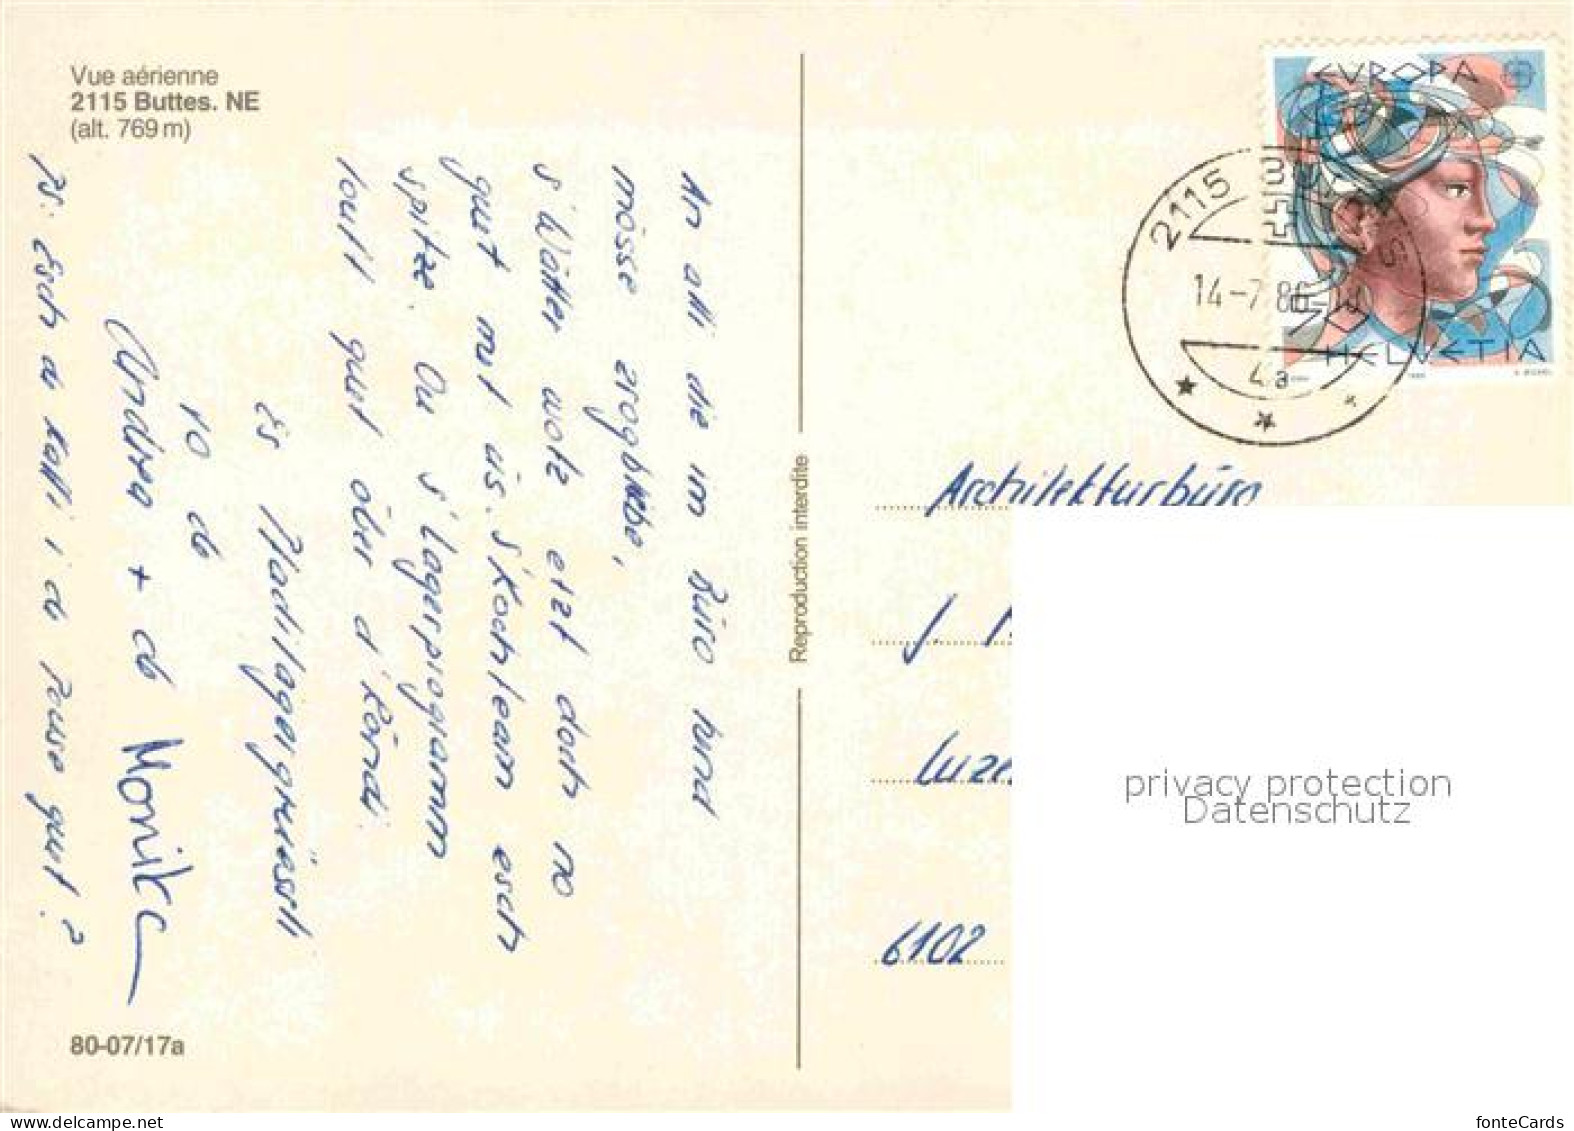 Vue aérienne
2115 Buttes. NE
(alt. 769 m)
An alli die im Büro wnd
mösse zrogblebe,
s'Wätter wotz etzt doch no
guet met üs. S'Kochteam esch
spitze. Ou s'Lagerprogramm
louft guet öber d'Rondi.
Es Pfadilagergrüessli
vo de
Andrea + de Monika
PS: Esch de Kaffi i de Pause guet?
80-07/17a
Reproduction interdite
EVROPA
HELVETIA
2115 BUTTES
14-7.86-
4a
Architekturbüro
J.
Luze
6102
privacy protection
Datenschutz
fonteCards